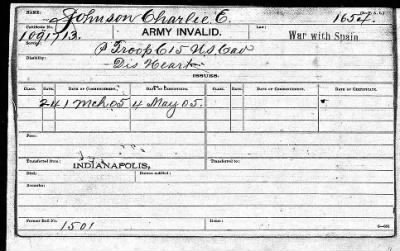 NAME: Johnson Charlie E. 1654.
Certificate No. ARMY INVALID. Law:
1091713. War with Spain
Service: P Troop C 15 US Cav
Disability: Dis Heart
ISSUES.
CLASS. RATE. DATE OF COMMENCEMENT. DATE OF CERTIFICATE. CLASS. RATE. DATE OF COMMENCEMENT. DATE OF CERTIFICATE.
24 1 Mch 05 4 May 05.
Fees:
Transferred from INDIANAPOLIS, Transferred to
Died:
Remarks:
Former Roll No. 1501 Home: